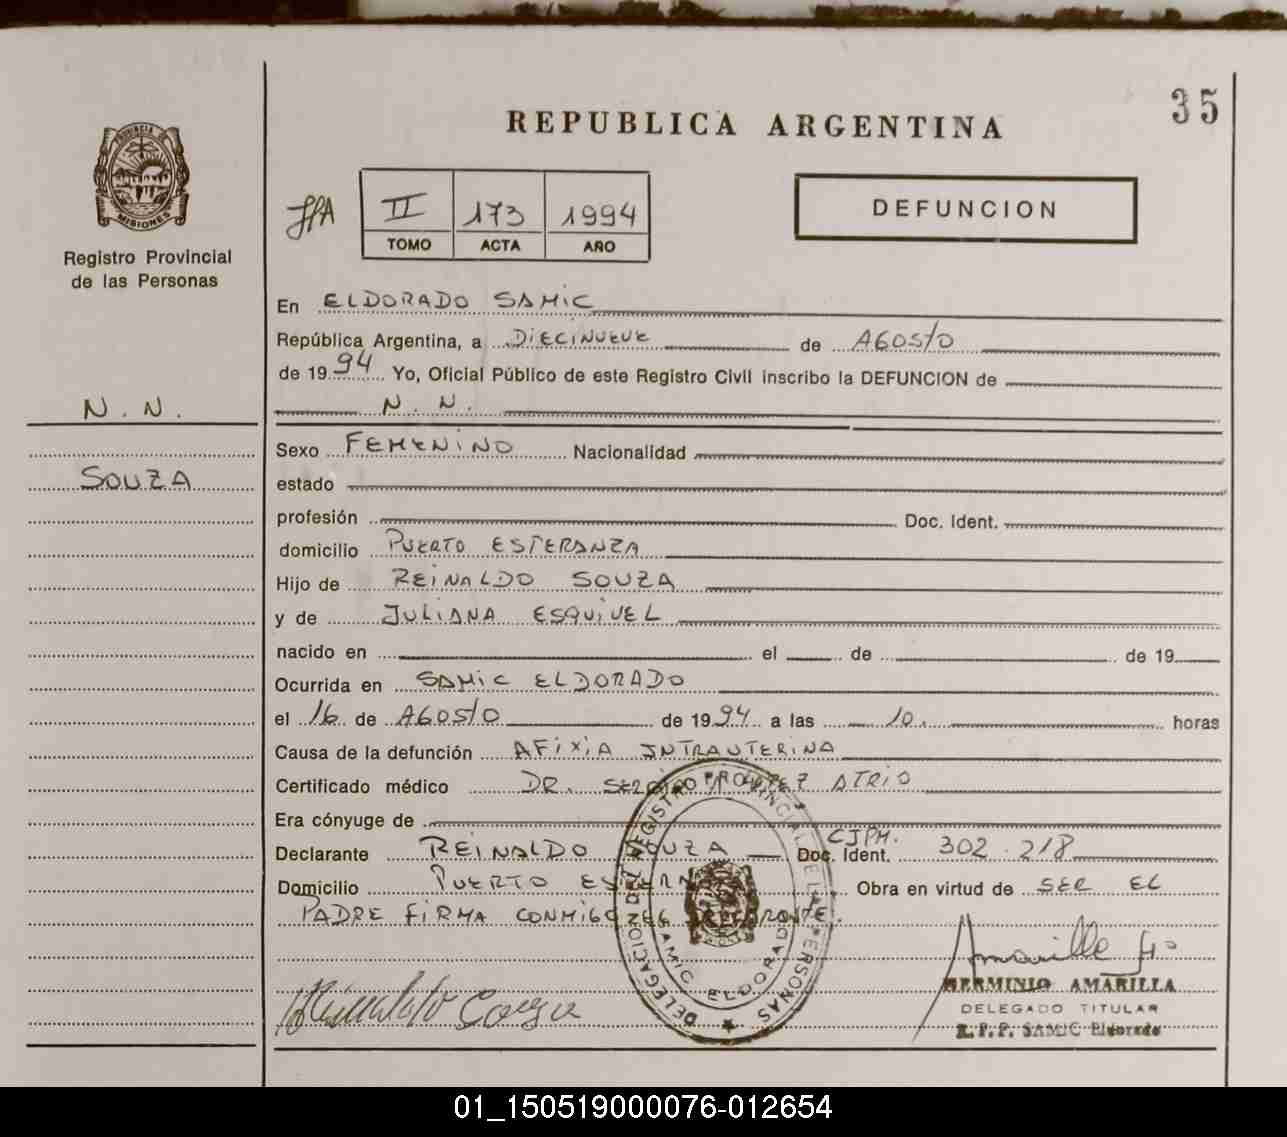 35
REPUBLICA ARGENTINA
PROVINCIA DE
MISIONES
Registro Provincial
de las Personas
II 173 1994
TOMO ACTA AÑO
DEFUNCION
En ELDORADO SAMIC
República Argentina, a DIECINUEVE de AGOSTO
de 1994 Yo, Oficial Público de este Registro Civil inscribo la DEFUNCION de
N. N.
N. N.
SOUZA
Sexo FEMENINO Nacionalidad
estado
profesión Doc. Ident.
domicilio PUERTO ESPERANZA
Hijo de REINALDO SOUZA
y de JULIANA ESQUIVEL
nacido en el de de 19
Ocurrida en SAMIC ELDORADO
el 16 de AGOSTO de 1994 a las 10. horas
Causa de la defunción AFIXIA INTRAUTERINA
Certificado médico DR. SERGIO LOPEZ ATRIO
Era cónyuge de
Declarante REINALDO SOUZA Doc. Ident. CJPM. 302.218
Domicilio PUERTO ESPERANZA Obra en virtud de SER EL
PADRE FIRMA CONMIGO EL DECLARANTE.
DELEGACION DEL REGISTRO PROVINCIAL DE LAS PERSONAS
SAMIC ELDORADO
Amarilla Ho
HERMINIO AMARILLA
DELEGADO TITULAR
R.P.P. SAMIC Eldorado
01_150519000076-012654